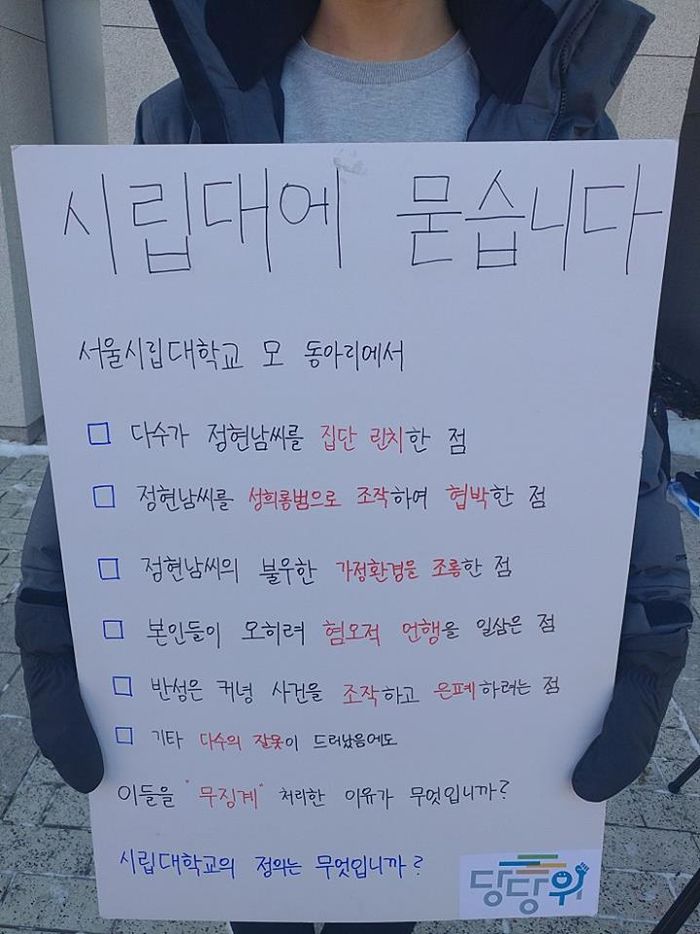 시립대에 묻습니다
서울시립대학교 모 동아리에서
다수가 정현남씨를 집단 린치한 점
정현남씨를 성희롱범으로 조작하여 협박한 점
정현남씨의 불우한 가정환경을 조롱한 점
본인들이 오히려 혐오적 언행을 일삼은 점
반성은 커녕 사건을 조작하고 은폐하려는 점
기타 다수의 잘못이 드러났음에도
이들을 "무징계" 처리한 이유가 무엇입니까?
시립대학교의 정의는 무엇입니까?
당당위